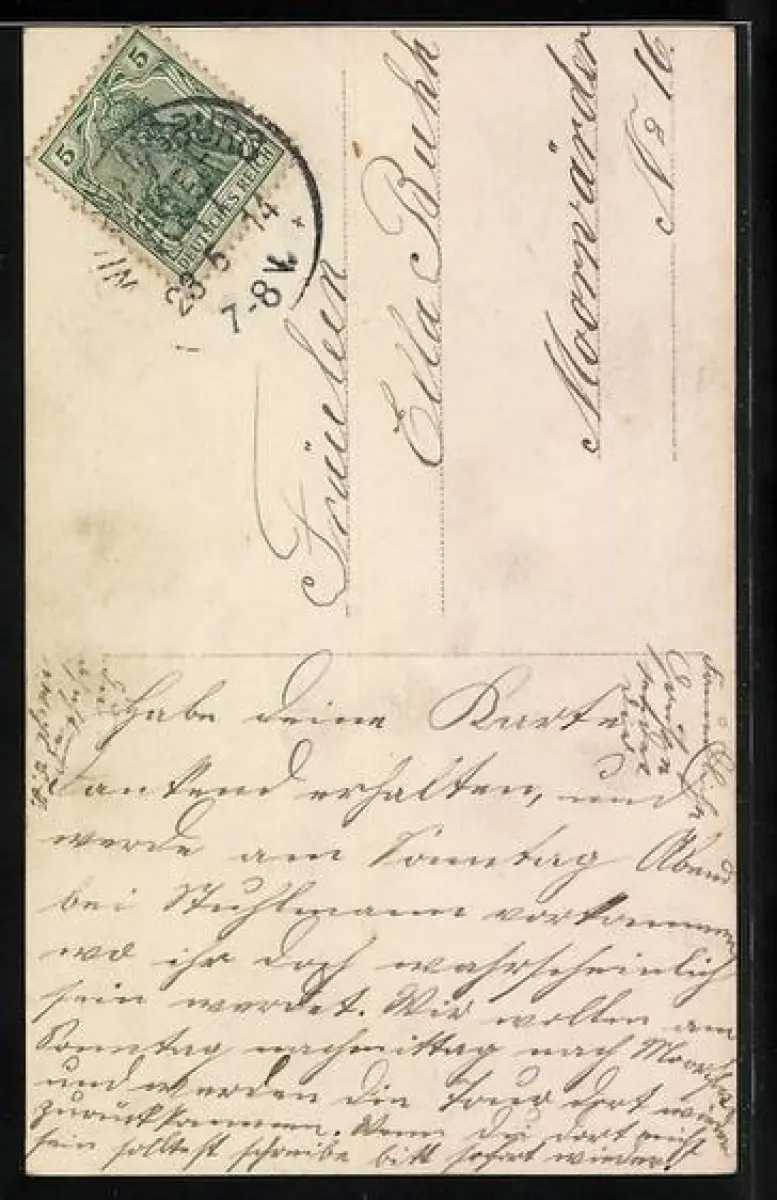 5
5
DEUTSCHES REICH
BURG
23.5.14
7-8V.
Fräulein
Ella Buhk
Moorwärder
No 16
Habe deine Karte
dankend erhalten, und
werde am Sonntag Abend
bei Stuhlmann vorkommen
wo ihr doch wahrscheinlich
sein werdet. Wir wollen am
Sonntag nachmittag nach
und werden die Tour dort wieder
zurückkommen. Wenn du dort nicht
sein solltest schreibe bitt sofort wieder.